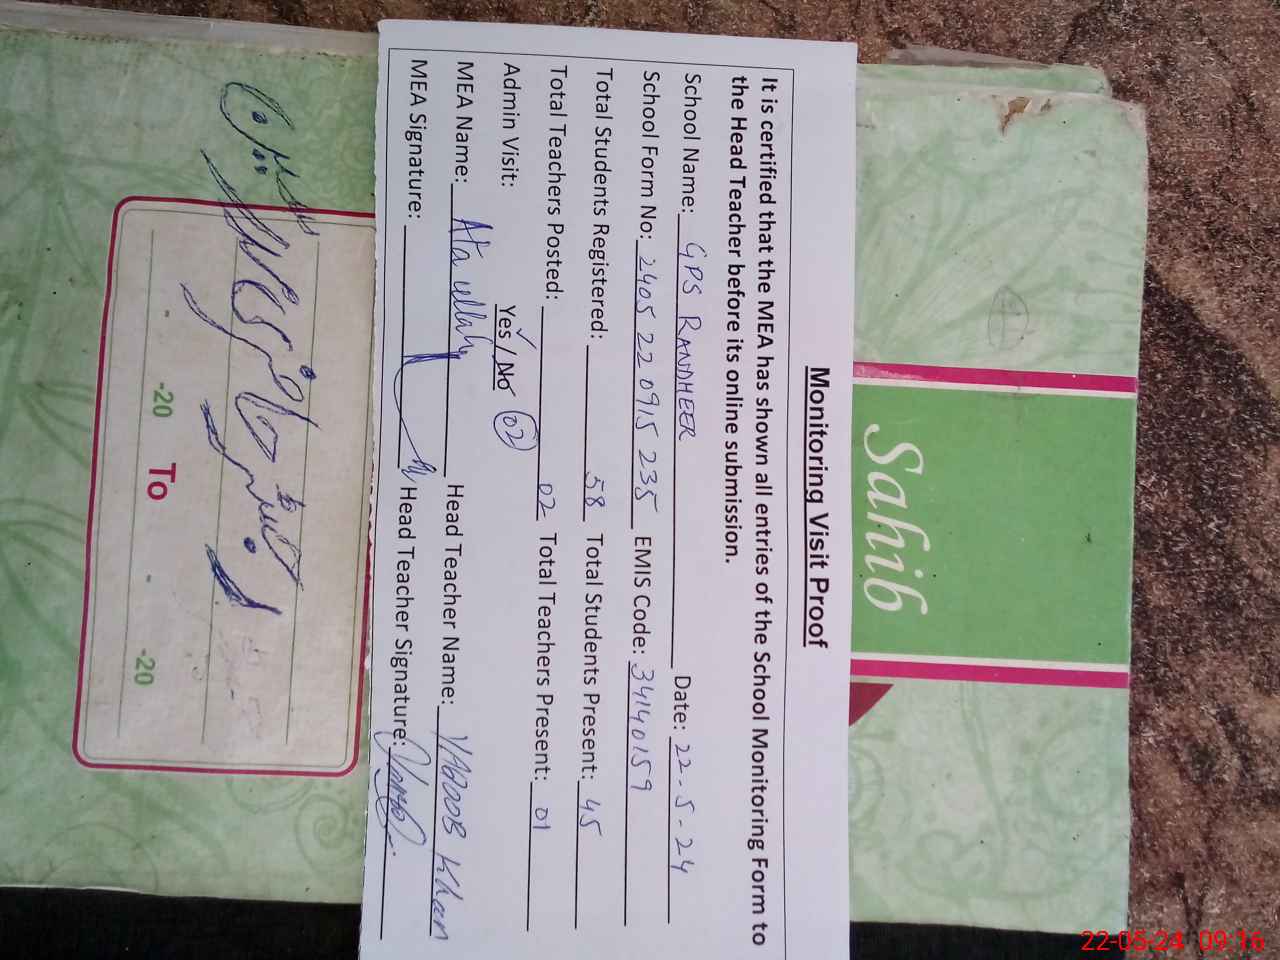 Monitoring Visit Proof
It is certified that the MEA has shown all entries of the School Monitoring Form to
the Head Teacher before its online submission.
School Name: GPS RANDHEER Date: 22-5-24
School Form No: 2405 22 0915 235 EMIS Code: 34140159
Total Students Registered: 58 Total Students Present: 45
Total Teachers Posted: 02 Total Teachers Present: 01
Admin Visit: Yes / No 02
MEA Name: Ata ullah Head Teacher Name: YAQOOB Khan
MEA Signature: Head Teacher Signature:
Sahib
- -20 To - -20
22-05-24 09:16